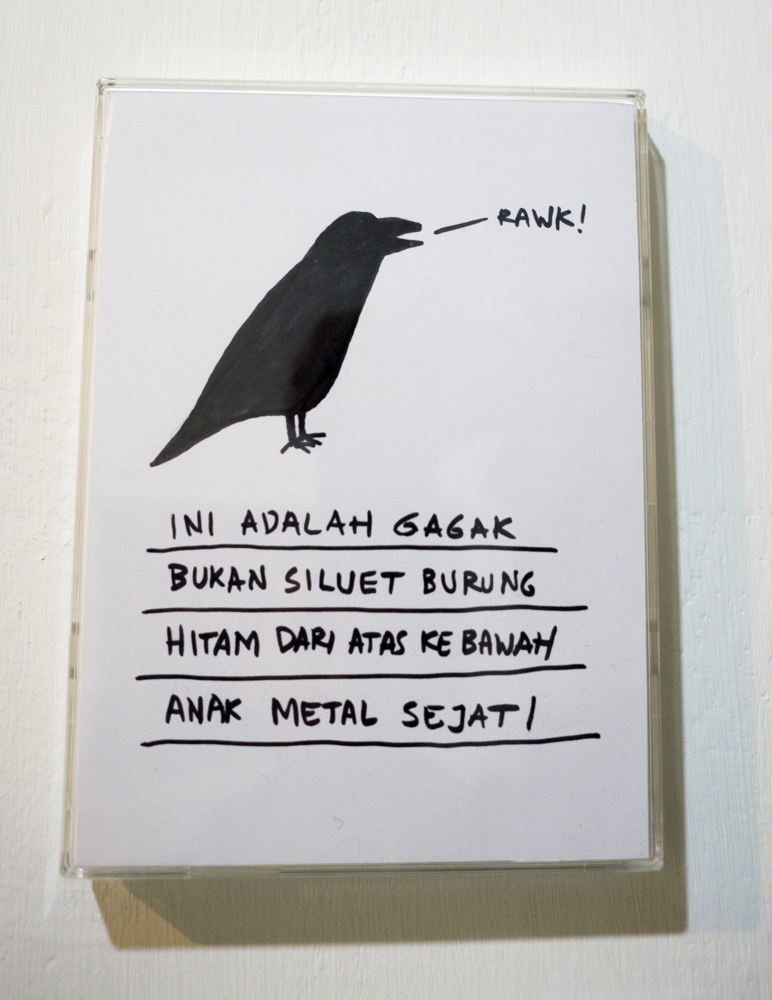 RAWK!
INI ADALAH GAGAK
BUKAN SILUET BURUNG
HITAM DARI ATAS KE BAWAH
ANAK METAL SEJATI